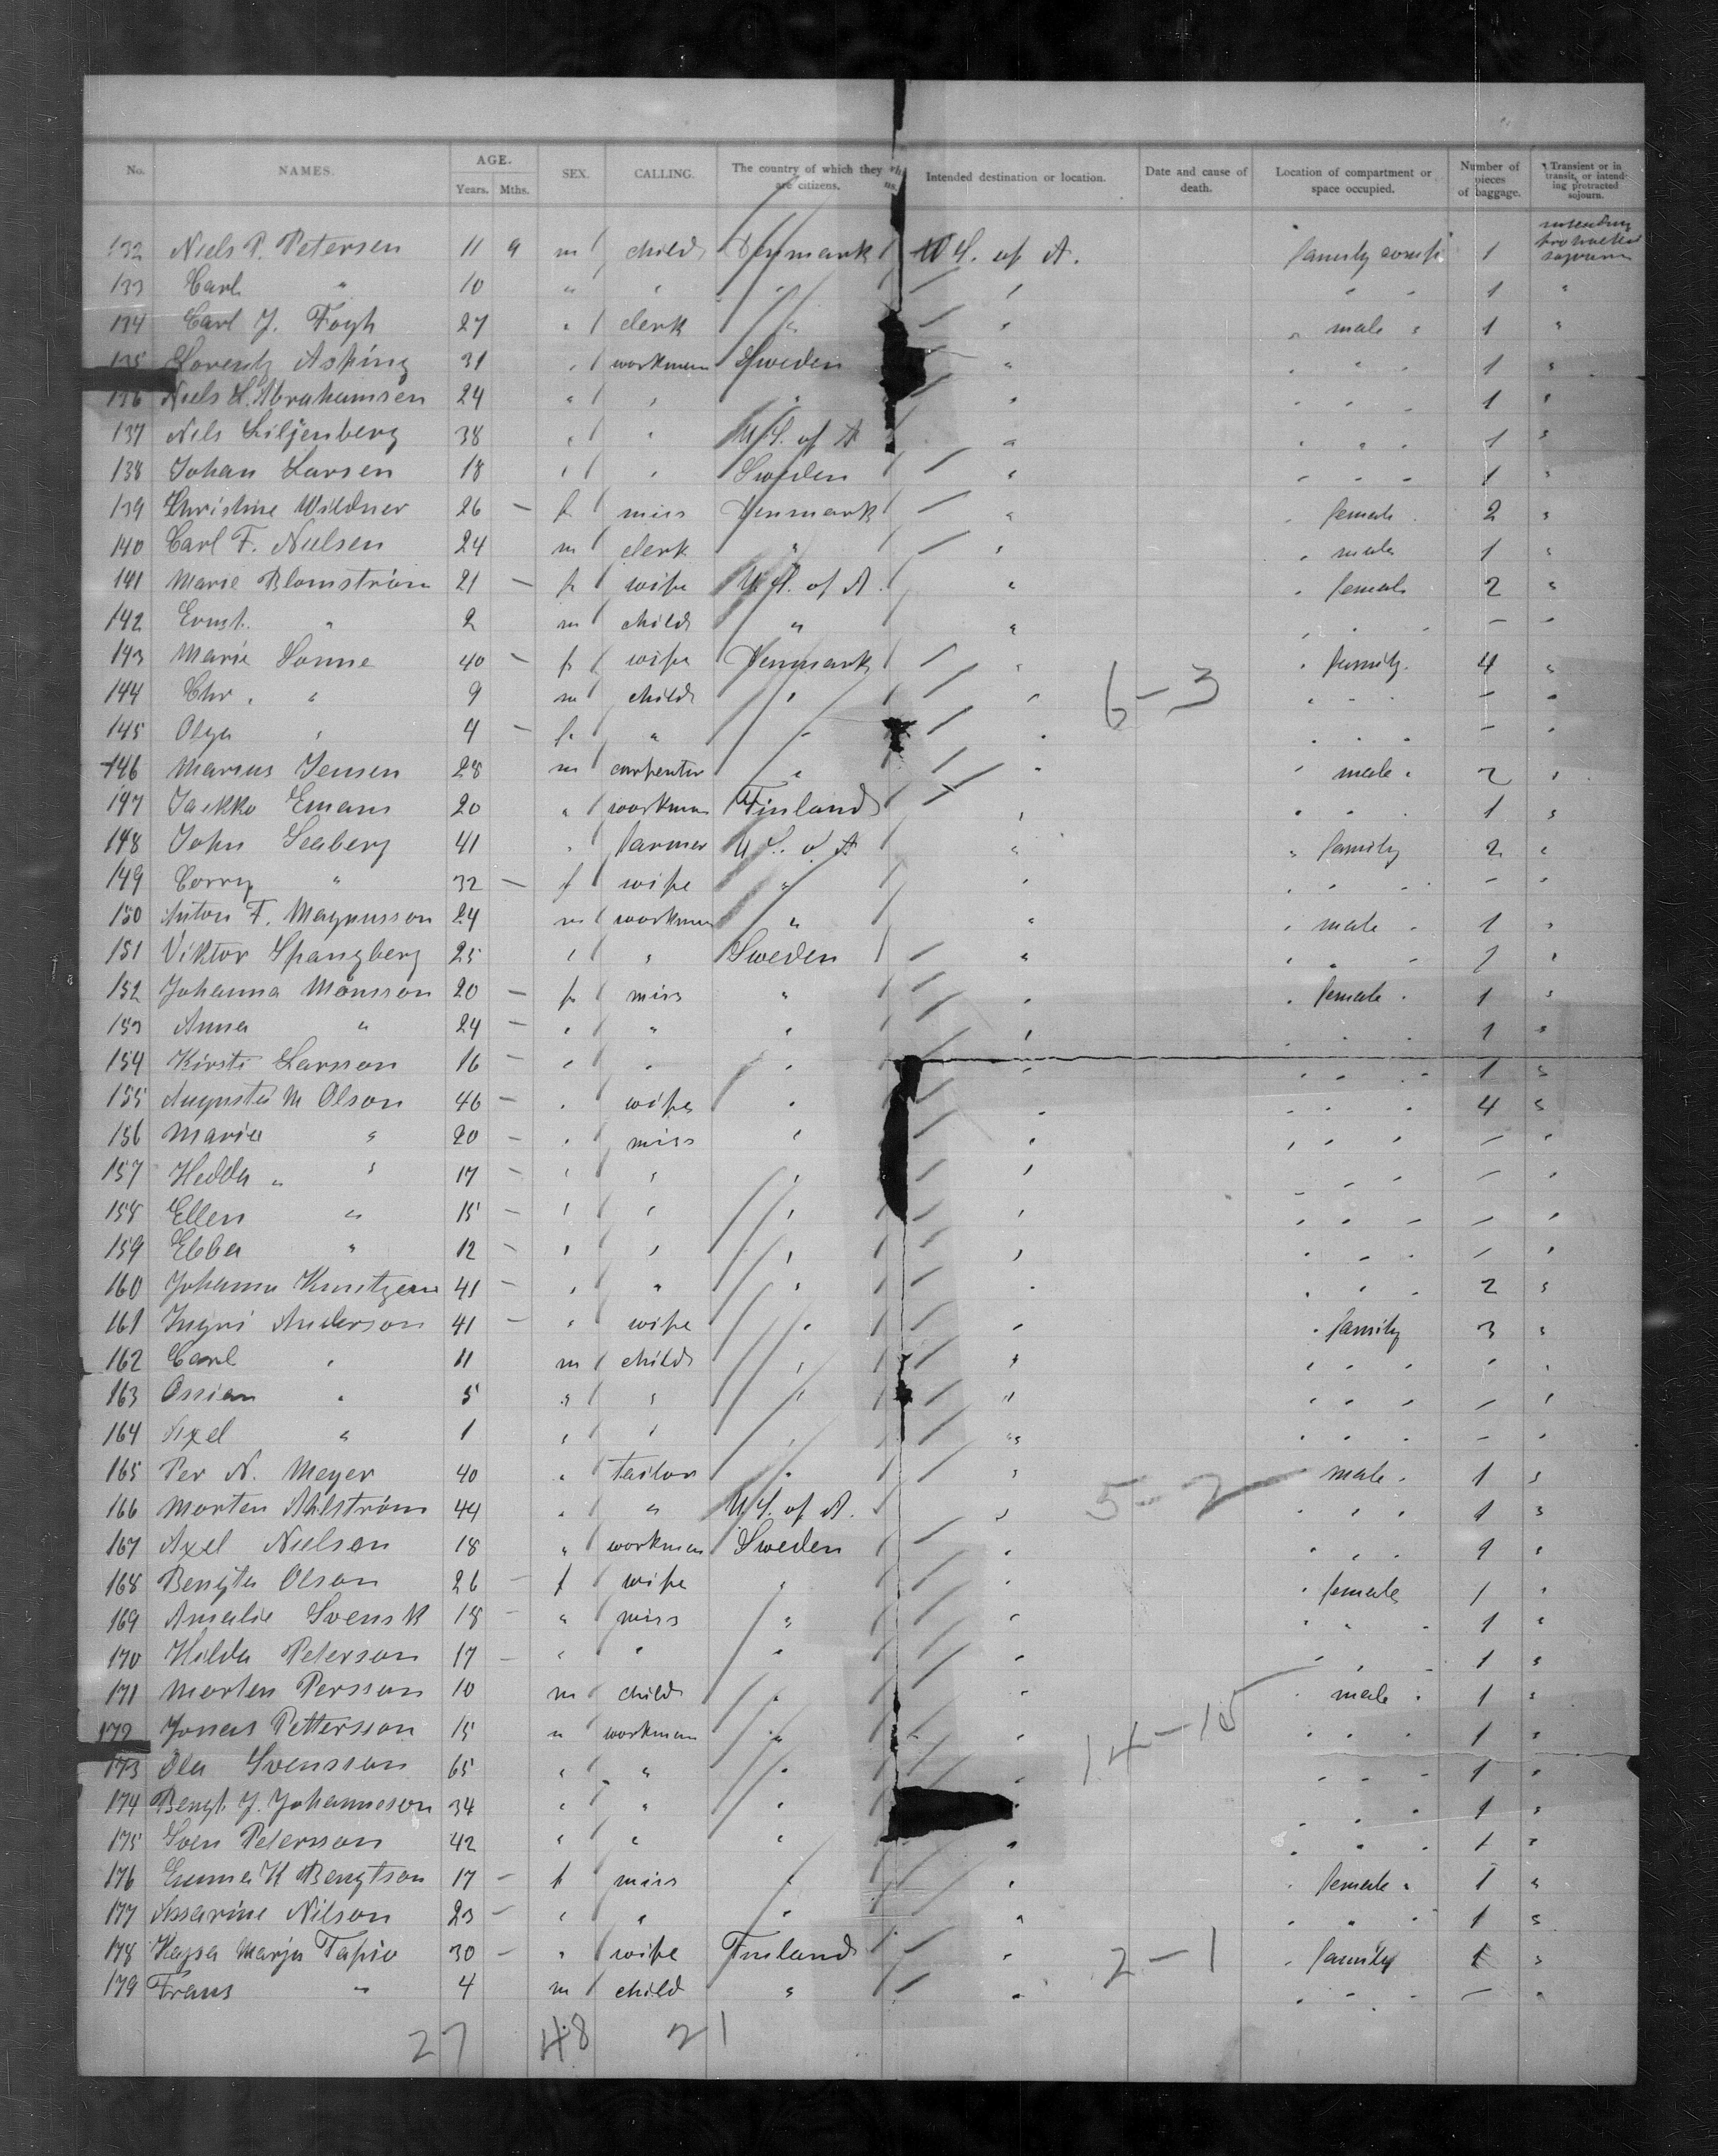 No. NAMES. AGE. Years. Mths. SEX. CALLING. The country of which they are citizens. Intended destination or location. Date and cause of death. Location of compartment or space occupied. Number of pieces of baggage. Transient or in transit, or intending protracted sojourn.
132 Niels P. Petersen 11 9 m child Denmark U S. of A. family 1 intending protracted sojourn
133 Carl " 10 " " " " " " " 1 "
134 Carl J. Fogh 27 " clerk " " " male " 1 "
135 Lorentz Asping 31 " workman Sweden " " " " 1 "
136 Niels L. Abrahamsen 24 " " " " " " " 1 "
137 Nels Liljenberg 38 " " U.S. of A " " " " 1 "
138 Johan Larsen 18 " " Sweden " " " " 1 "
139 Christine Wildner 26 — f miss Denmark " " female " 2 "
140 Carl F. Nielsen 24 m clerk " " " male 1 "
141 Marie Blomström 21 — f wife U.S. of A. " " female 2 "
142 Ernst " 2 m child " " " " " — "
143 Marie Sonne 40 — f wife Denmark " " family " 4 "
144 Chr. " 9 m child " " " " " — "
6-3
145 Olga " 4 — f " " " " " " — "
146 Marius Jensen 28 m carpenter " " " male " 2 "
147 Jaekko Emans 20 " workman Finland " " " " 1 "
148 John Seaberg 41 " farmer U S. of A " " family 2 "
149 Corry " 32 — f wife " " " " " — "
150 Anton F. Magnusson 24 m workman " " " male " 1 "
151 Viktor Spangberg 25 " " Sweden " " " " 1 "
152 Johanna Monsson 20 — f miss " " " female " 1 "
153 Anna " 24 — " " " " " " " 1 "
154 Kirsti Larsson 16 — " " " " " " " 1 "
155 Augusta M Olson 46 — " wife " " " " " 4 "
156 Maria " 20 — " miss " " " " " — "
157 Hedda " " 17 — " " " " " " " — "
158 Ellen " 15 — " " " " " " " — "
159 Ebba " 12 — " " " " " " " — "
160 Johanna 41 — " " " " " " " 2 "
161 Ingri Anderson 41 — " wife " " " family 3 "
162 Carl " 11 m child " " " " " " "
163 Ossian " 5 " " " " " " " — "
164 Axel " 1 " " " " " " " — "
165 Per N. Meyer 40 " tailor " " " male " 1 "
5-2
166 Morten Ahlström 44 " " U.S. of A. " " " " 1 "
167 Axel Nielsen 18 " workman Sweden " " " " 1 "
168 Bengta Olson 26 — f wife " " " female 1 "
169 Amalie Svensk 18 — " miss " " " " " 1 "
170 Hilda Peterson 17 — " " " " " " " 1 "
171 Morten Persson 10 m child " " " male " 1 "
172 Jonas Pettersson 15 " workman " " " " " 1 "
14-15
173 Ola Svensson 65 " " " " " " " 1 "
174 Bengt J. Johanneson 34 " " " " " " " 1 "
175 Sven Petersson 42 " " " " " " " 1 "
176 Emma K Bengtson 17 — f miss " " " female " 1 "
177 Assarine Nilson 23 — " " " " " " " 1 "
178 Kaysa Marja Tapio 30 — " wife Finland " " family 1 "
2-1
179 Frans " 4 m child " " " " " — "
27 48 21